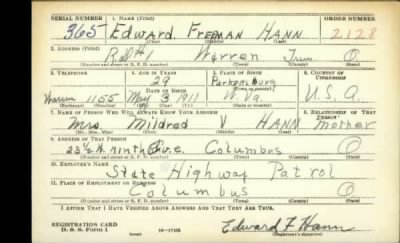 SERIAL NUMBER 1. NAME (Print) ORDER NUMBER
365 EDWARD FREEMAN HANN 2128
2. ADDRESS (Print)
R.D.#1 Warren Trum O
(Number and street or R. F. D. number) (Town) (County) (State)
3. TELEPHONE 4. AGE IN YEARS 5. PLACE OF BIRTH 6. COUNTRY OF CITIZENSHIP
29 Parkersburg
DATE OF BIRTH (Town or county)
Warren 1155 May 3 1911 W. Va. U.S.A.
(Exchange) (Number) (Mo.) (Day) (Yr.) (State or country)
7. NAME OF PERSON WHO WILL ALWAYS KNOW YOUR ADDRESS 8. RELATIONSHIP OF THAT PERSON
Mrs. Mildred V HANN mother
(Mr., Mrs., Miss) (First) (Middle) (Last)
9. ADDRESS OF THAT PERSON
23½ W. ninth Ave. Columbus O
(Number and street or R. F. D. number) (Town) (County) (State)
10. EMPLOYER'S NAME
State Highway Patrol
11. PLACE OF EMPLOYMENT OR BUSINESS
Columbus O
(Number and street or R. F. D. number) (Town) (County) (State)
I AFFIRM THAT I HAVE VERIFIED ABOVE ANSWERS AND THAT THEY ARE TRUE.
REGISTRATION CARD
D. S. S. FORM 1 (over) 16-17105 Edward F Hann
(Registrant's signature)